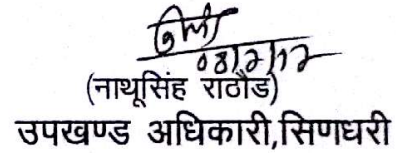 08/2/12
(नाथूसिंह राठौड)
उपखण्ड अधिकारी,सिणधरी